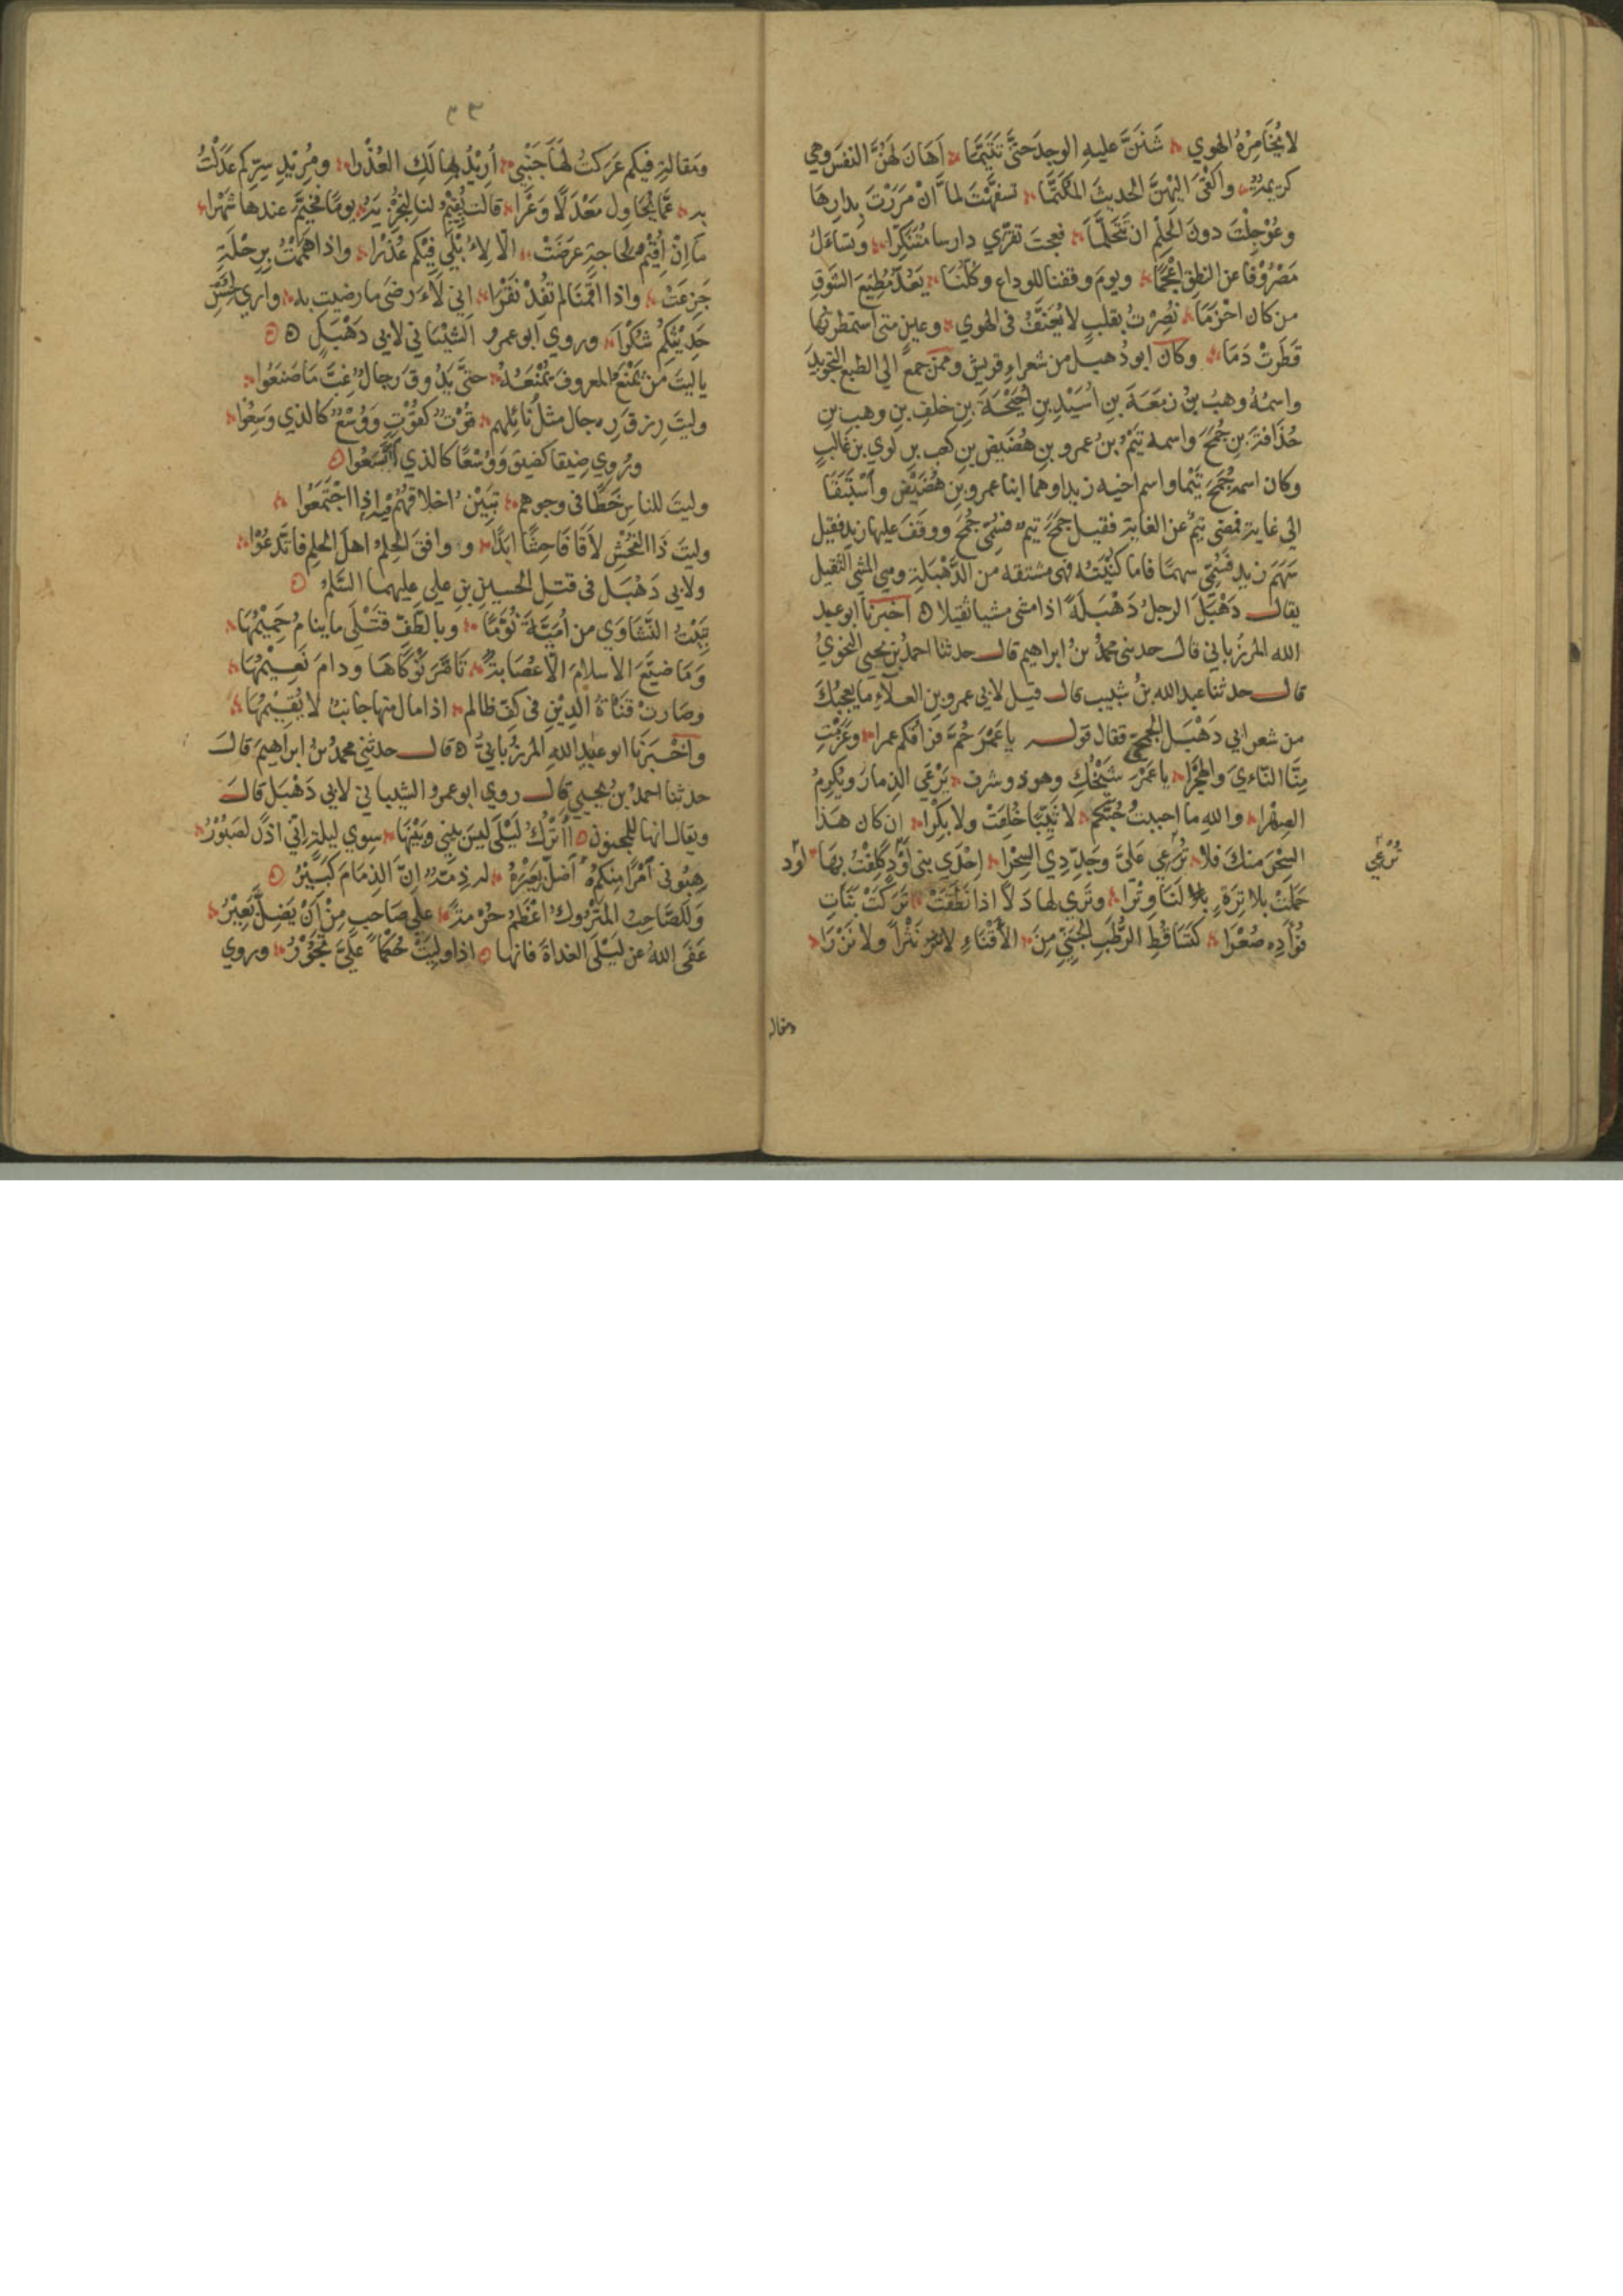 لا يُخَامِرُهُ الهوي شَنَنَّ عليهِ الوجدَ حتَّى تَتَيَّمَا اَهَانَ لَهُنَّ النفسَ وهي
كريمةٌ والقى اليهنَّ الحديثَ المكتَّما تسفهتَ لما اَنْ مَرَرْتَ بدارِهَا
وعُوْجِلْتَ دونَ الحِلْمِ ان تَتَحَلَّمَا فعجتَ تقرّي دارسا مُتَنَكِّرًا وتسأَلُ
مَصْرُوْفًا عن النطقِ اَعْجَمَا ويومَ وقفنا للوداعِ وكُلُّنَا يَعُدُّ مُطِيْعَ الشوقِ
من كان احْزَمَا نُصِرْتُ بقلبٍ لا يُعَنَّفُ في الهوي وعينٍ متى استمطرتُها
قَطَرَتْ دَمَا وكان ابو دُهبل من شعراءِ قريش وممن جمع الي الطبعِ التجويدَ
واسمُهُ وهبُ بنُ زمَعَةَ بنِ اُسَيْدِ بنِ اُحَيْحَةَ بنِ خلفِ بنِ وهبِ بنِ
حُذَافةَ بنِ جُمَحَ واسمه تَيْمُ بنُ عمرو بنِ هُصَيصِ بنِ كعبِ بنِ لوي بنِ غالبٍ
وكان اسم جُمَحَ تَيْما واسم اخيه زيدا وهما ابنا عمرو بنِ هُصَيْصٍ واسْتَبَقَا
الي غايةٍ فمضى تيمٌ عن الغايةِ فقيل جمَحَ تيمٌ فسُمّيَ جُمَحَ ووقَفَ عليها زيد فقيل
سَهَمَ زيد فسُمّيَ سهمًا فاما كُنْيَتُه فهي مشتقه من الدَّهْبَلَةِ وهي المشي الثقيل
يقال دَهْبَلَ الرجلُ دَهْبَلَةً اذا مشى مشيا ثقيلا اخبرنا ابو عبيد
الله المرزباني قال حدثني محمدُ بنُ ابراهيم قال حدثنا احمدُ بن يحيي النحويُّ
قال حدثنا عبد الله بنُ شبيب قال قيل لابي عمرو بنِ العلآءِ ما يعجبُكَ
من شعر ابي دَهْبَل الجمحيّ فقال قوله يا عَمْرَ حُمَّ فراقكم عمرا وعَزَمْتِ
مِنَّا النَّاءيَ والهَجْرَا يا عَمْرَ شيْخُكِ وهو ذو شرف يَرْعَي الذِمارَ ويُكرِمُ
الصِهْرا واللهِ ما احببتُ حُبَّكم لا ثَيِّبًا خُلِقَتْ ولا بِكْرًا اِن كان هَذَا
السِحْرَ منكَ فلا تُرْعي عَليَّ وجَدِّدِي السِحْرَا اِحْدَي بني اَوْدٍ كَلِفْتُ بِهَا
تُرْعي
اَوْد
حَمَلَتْ بلا تِرَةٍ لَنَا وِتْرَا وتَرى لها دَلّاً اذا نَطَقَتْ تَرَكَتْ بَنَاتِ
فُؤَادِهِ صُعْرَا كَتَسَاقُطِ الرُطَبِ الجَنِيِّ مِنَ الأَقْنَاءِ لا نَثْراً ولا نَزْرَا
ومقالة
٣٣
ومَقالةٍ فيكم عَرَكتُ لها جَنْبِي اُرِيْدُ بها لَكِ العُذْرا ومُرِيْدِ سِرِّكم عَدَلْتُ
به عَمَّا يُحَاوِل مَعْدَلًا وَعْرَا قالت يُقِيْمُ لنا لِنَجْزِيَهُ يومًا فخيَّمَ عندها شَهْرا
مَا اِنْ اُقِيْمُ لِحَاجةٍ عرَضَتْ الّا لِاُبْلِيَ فِيْكم عُذْرَا واذا هَمَمْتُ بِرِحْلَةٍ
جَزِعَتْ واذا اقمنا لم تُفِدْ نَقْرَا اِني لاَءَرضَى ما رضيتِ به واري لِحُسْنِ
حَدِيْثِكُمْ شُكْرَا وروي ابو عمرو الشيْبَاني لابي دَهْبَلٍ
يا ليتَ مَن يَمْنَعُ المعروفَ يُمْنَعُهُ حتَّى يَذُوقَ رجالٌ غِبَّ مَا صَنَعُوا
وليتَ رِزقَ رجال مثلُ نَائِلِهم قُوْتٌ كقُوْتٍ وَوُسْعٌ كالذي وَسِعُوا
ويُروي ضِيقا كضيقٍ وَوُسْعًا كالذي اتَّسَعُوا
وليتَ للناسِ خَطًّا في وجوههم تَبِيَنُ اخلاقُهُمْ فيه اِذا اجْتَمَعُوا
وليتَ ذَا الفُحْشِ لَاقَا فَاحِشًا ابَدًا ووافقَ الحِلمُ اهلَ الحلمِ فاتَّدعُوْا
ولابي دَهْبَل في قتلِ الحسينِ بنِ علي عليهما السَّلمُ
تَبِيْتُ النَّشَاوَي من اُمَيَّةَ نُوَّمًا وبالطَفِّ قَتْلَى ما ينامُ حَمِيْمُهَا
وَمَا ضَيَّعَ الاسلامَ الّا عصَابةٌ تَأَمَّرَ نَوْكَاهَا ودامَ نَعِيْمُهَا
وصَارتْ قَنَاةُ الدِيْنِ في كفِّ ظالمٍ اذا مال منها جَانبٌ لا يُقِيْمُهَا
واَخْبَرَنَا ابو عبيد اللهِ المرزُبانيُّ قال حدثني محمدُ بنُ ابراهيمَ قالَ
حدثنا احمدُ بنُ يحيي قال روي ابو عمرو الشيباني لابي دَهْبَل قالَ
ويقال انها للمجنون أأَتْرُكُ لَيْلَى ليسَ بيني وبَيْنَهَا سِوي ليلةٍ اِنّي اذًا لصَبُوْرُ
هِبُوني اَمْرًا مِنكُمْ اَضَلَّ بَعِيْرَهُ له ذِمَّةٌ اِنَّ الذِمَامَ كَبِيْرُ
وَلَلصَّاحِبُ المَتْرُوكُ اعْظَمُ حُرْمةً علي صَاحبٍ مِنْ اَنْ يَضِلَّ بَعِيْرُ
عَفَى اللهُ عن لَيْلَى الغداةَ فانها اذا وليت حُكْمًا عَليَّ تَجُوْرُ وروي